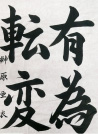 有為
転変